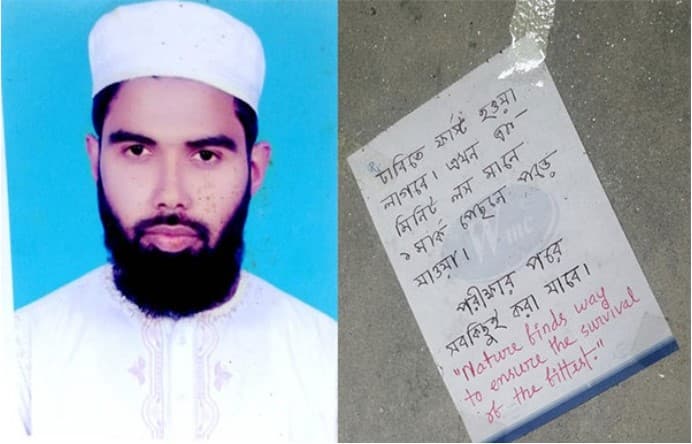 ঢাবিতে ফার্স্ট হওয়া
লাগবে। এখন এক
মিনিট লস মানে
১ মার্ক পেছনে পড়ে
যাওয়া।
পরীক্ষার পরে
সবকিছুই করা যাবে।
"Nature finds way
to ensure the survival
of the fittest."